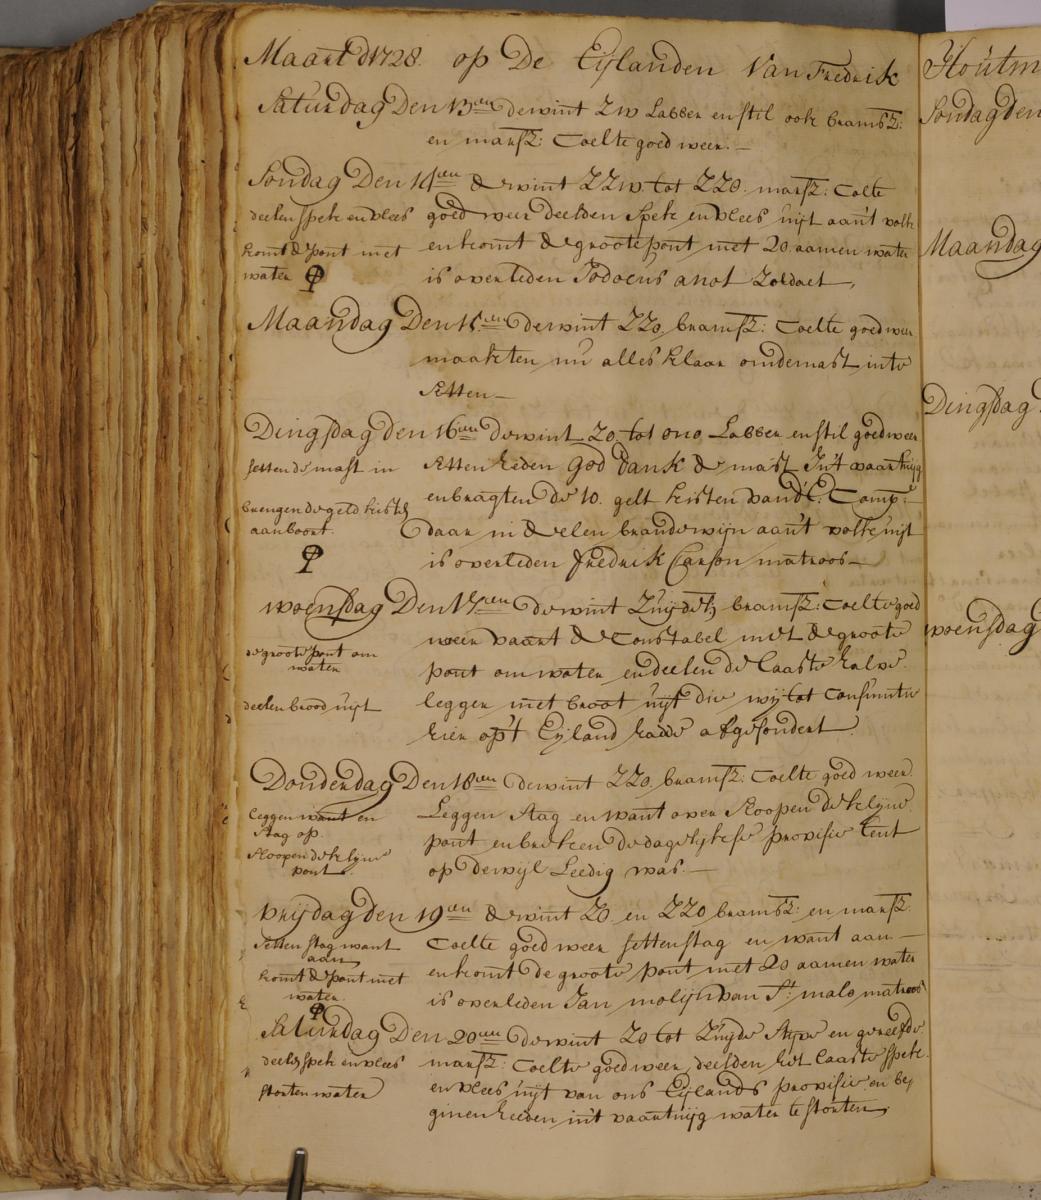 Maart A1728. op De Eijlanden Van Fredrik
Saturdag Den 13en dewint ZW Labber en stil ook bramsz:
en marsz: Coelte goed weer. —
Sondag Den 14en de wint ZZW tot ZZO. marsz: Coelte
deelen spek en vlees
goed weer deelden spek en vlees uijt aan't volk
komt de pont met
en komt de groote pont met 20 aamen water
water
is overleden Jodocus anot Zoldaet,
Maandag Den 15en dewint ZZO. bramsz: Coelte goed weer
maakten nu alles klaar om de mast in te
setten —
Dingsdag den 16en dewint ZO. tot ono Labber en stil goed weer
setten de mast in
setten heden god dank de mast In't vaartuijg
brengen de geld kisten
en bragten de 10. gelt kisten van d'E: Comp:
aan boort.
daar in deelen brandewijn aan't volk uijt
is overleden fredrik Carson matroos —
woensdag Den 17en de wint Zuijdelij bramsz: Coelte goed
weer vaart de Constabel met de groote
de groote pont om
water
pont om water en deelen de laaste halve
deelen brood uijt
legger met broot uijt die wij tot consumtie
hier op't Eijland hadde afgesondert
Donderdag Den 18en dewint ZZO. bramsz: Coelte goed weer.
Leggen want en
Leggen stag en want over sloopen de klijne
stag op.
sloopen de klijne
pont en breken de dagelijkse provisie tent
pont.
op dewijl Leedig was. —
vrijdag den 19en de wint ZO en ZZO bramsz: en marsz.
setten stag want
Coelte goed weer setten stag en want aan —
aan
komt de pont met
en komt de groote pont met 20 aamen water
water.
is overleden Jan molijn van St: malo matroos
Saturdag Den 20en dewint ZO tot Zuijde stijve en gereefde
deelen spek en vlees
marsz: Coelte goed weer, deelden het laaste spek.
storten water
en vlees uijt van ons Eijlands provisie en be/
ginen heeden in't vaartuijg water te storten,
Houtm
Sondag den
Maandag
Dingsdag
woensdag